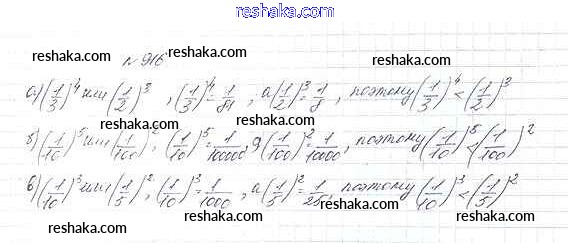 reshaka.com
reshaka.com № 916 reshaka.com reshaka.com
а) (1/3)^4 или (1/2)^3, (1/3)^4 = 1/81, а (1/2)^3 = 1/8, поэтому (1/3)^4 < (1/2)^3
reshaka.com reshaka.com reshaka.com
б) (1/10)^5 или (1/100)^2, (1/10)^5 = 1/100000, а (1/100)^2 = 1/10000, поэтому (1/10)^5 < (1/100)^2
reshaka.com reshaka.com reshaka.com
в) (1/10)^3 или (1/5)^2, (1/10)^3 = 1/1000, а (1/5)^2 = 1/25, поэтому (1/10)^3 < (1/5)^2
reshaka.com reshaka.com reshaka.com
reshaka.com